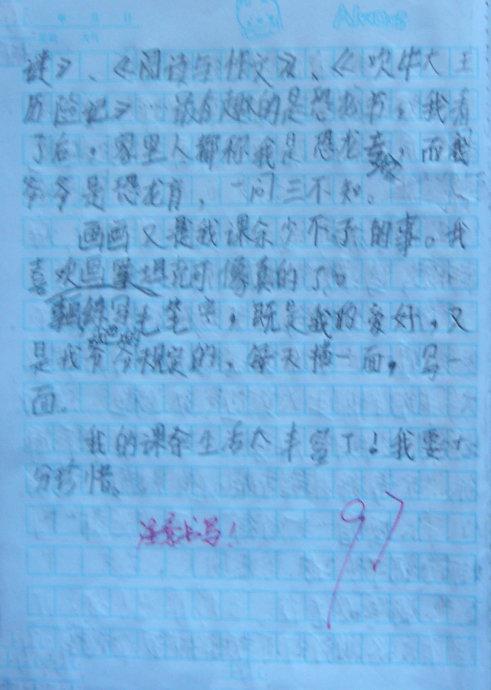 年 月 日
读》、《阅读与作文》、《吹牛大王
历险记》…最有趣的是恐龙书,我看
了后,家里人都你我是恐龙专,而我
爷爷是恐龙盲,一问三不知。
画画又是我课余少不了的事。我
喜欢画 可像真的了。
练写毛笔字,既是我的爱好,又
是我爷爷规定的,每天描一面,写一
面。
我的课余生活太丰富了!我要十
分珍惜。
注意书写!
97